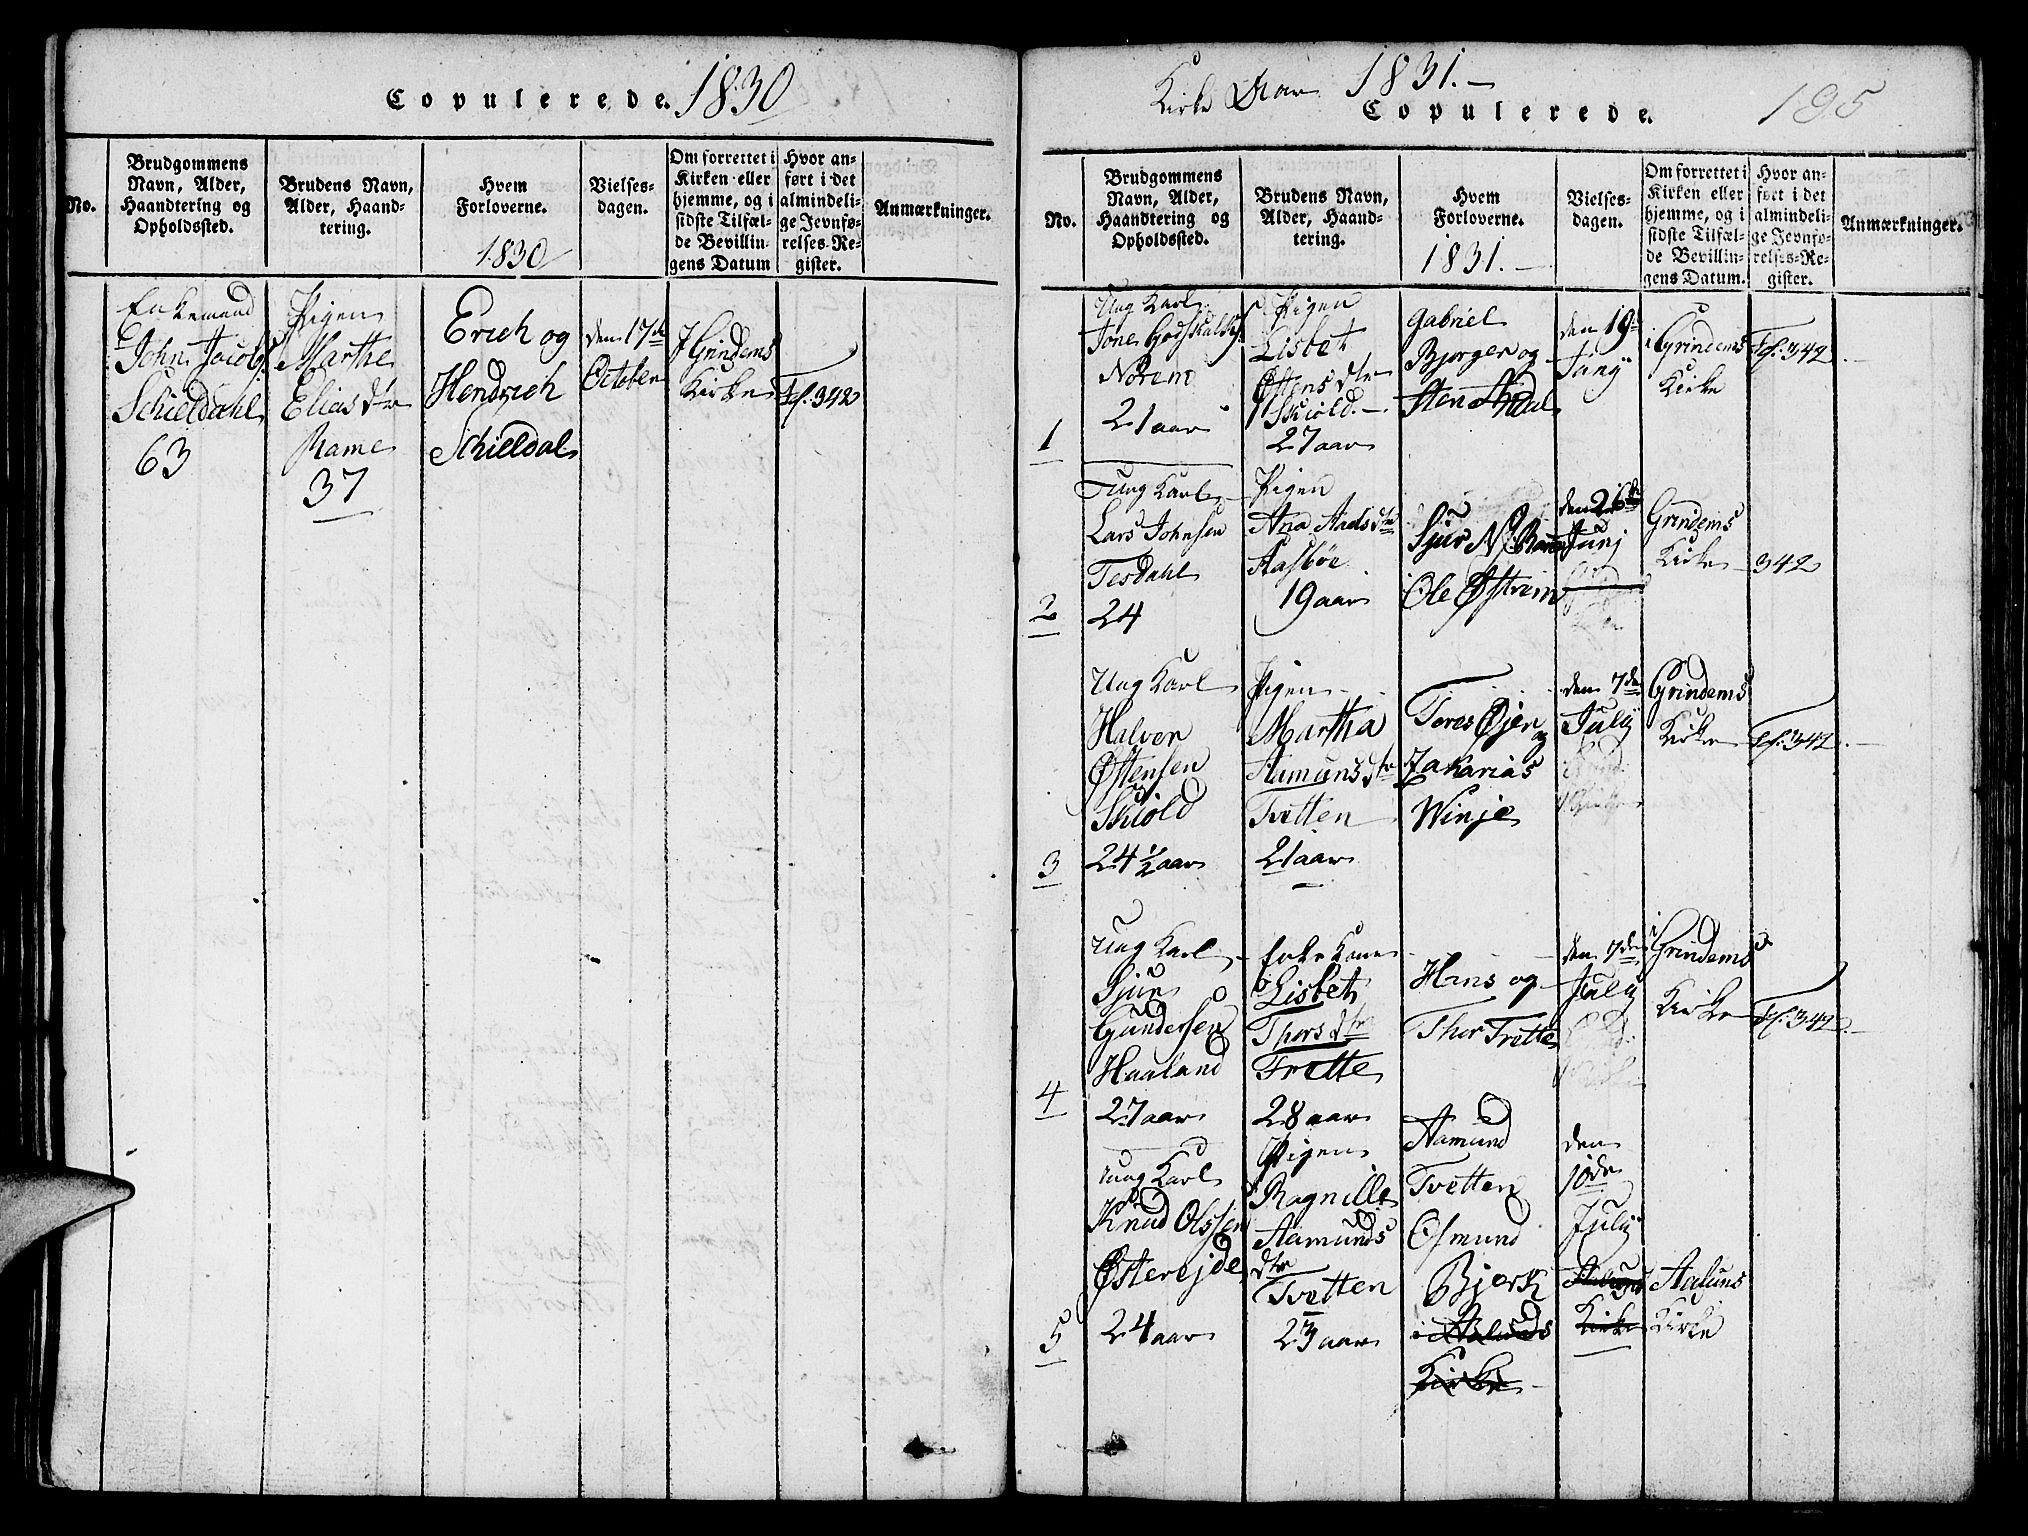 Copulerede. 1830
No.
Brudgommens Navn, Alder, Haandtering og Opholdssted.
Brudens Navn, Alder, Haandtering.
Hvem Forloverne.
1830
Vielsesdagen.
Om forrettet i Kirken eller hjemme, og i sidste Tilfælde Bevillingens Datum
Hvor anført i det almindelige Jevnførelses-Register.
Anmærkninger.
Enkemand
John Jacobs
Schieldahl
63
Pigen
Marthe
Elias dtr
Rame
37
Erich og
Hendrich
Schieldal
den 17de
October
I Grindems
Kirke
Tf. 342
Kirke Aar 1831.-
Copulerede.
195
No.
Brudgommens Navn, Alder, Haandtering og Opholdssted.
Brudens Navn, Alder, Haandtering.
Hvem Forloverne.
1831.-
Vielsesdagen.
Om forrettet i Kirken eller hjemme, og i sidste Tilfælde Bevillingens Datum.
Hvor anført i det almindelige Jevnførelses-Register.
Anmærkninger.
1
Ung Karl
Jone Godskalks
Norem
21 aar
Pigen
Lisbet
Østens dtr
Skiold.-
27 aar
Gabriel
Bjorgen og
Sten
den 19de
i Grindems
Kirke
Tf. 342
2
Ung Karl
Lars Johnsen
Tesdahl
24
Pigen
Ana Aads dtr
Aasbøe
19 aar
Sjur N.
Ole Østrem
den 26de
Junj
Grindems
Kirke
342
3
Ung Karl
Halver
Østensen
Skiold
24 1/2 aar
Pigen
Martha
Aamunds dtr
Tvetten
21 aar
Tores Øjen og
Zakarias
Winje
den 7de
July
Grindems
Kirke
Tf. 342
4
Ung Karl
Sjur
Gundersen
Haaland
27 aar
Enke Kone
Lisbet
Thors dtr
Trette
28 aar
Hans og
Thor Trette
den 7de
July
i Grindems
Kirke
Tf. 342
5
Ung Karl
Knud Olssen
Østerejde
24 aar
Pigen
Ragnille
Aamunds
dtr
Tvetten
23 aar
Aamund
Tvetten
Osmund
Bjork
Kirke
den
10de
July
Kirke
Aaluns
Kirke